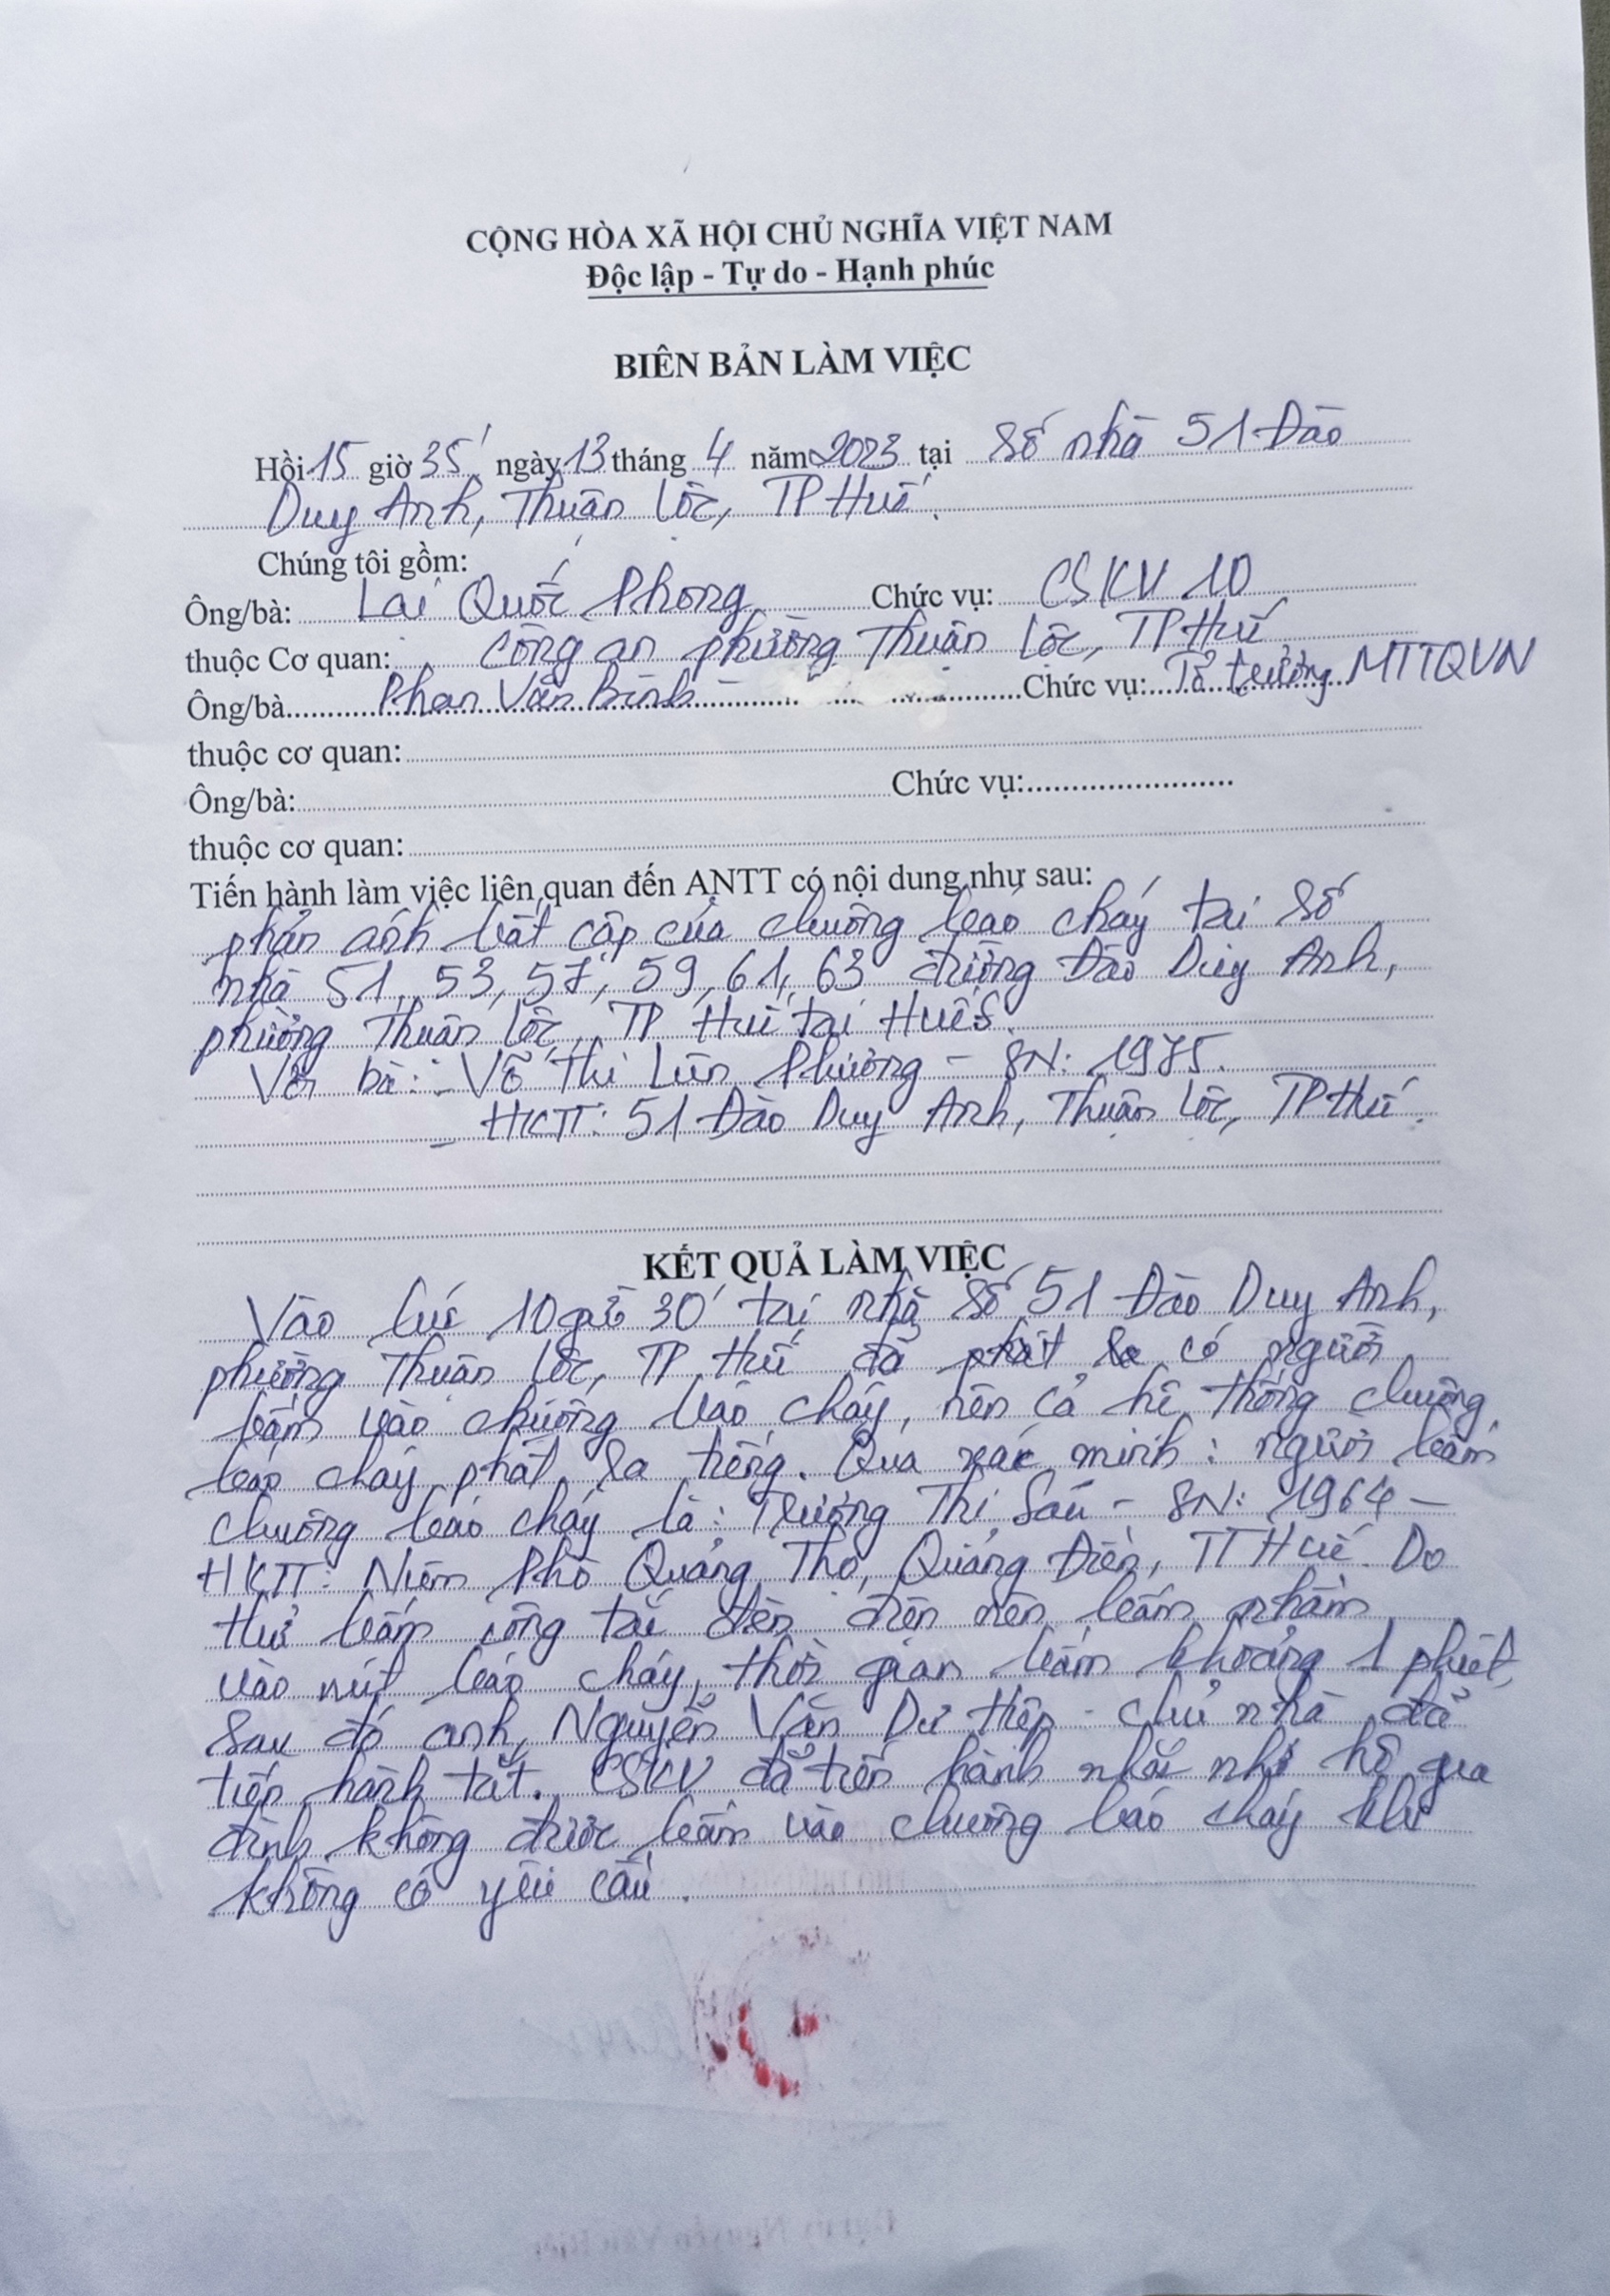 CỘNG HÒA XÃ HỘI CHỦ NGHĨA VIỆT NAM
Độc lập - Tự do - Hạnh phúc
BIÊN BẢN LÀM VIỆC
Hồi 15 giờ 35' ngày 13 tháng 4 năm 2023 tại Số nhà 51 Đào
Duy Anh, Thuận Lộc, TP Huế.
Chúng tôi gồm:
Ông/bà: Lái Quốc Phong Chức vụ: CSKV 10
thuộc Cơ quan: Công an phường Thuận Lộc, TP Huế
Ông/bà Phan Văn Bình Chức vụ: Tổ trưởng MTTQVN
thuộc cơ quan:
Ông/bà: Chức vụ:
thuộc cơ quan:
Tiến hành làm việc liên quan đến ANTT có nội dung như sau:
phản ánh bất cập của chuông báo cháy tại số
nhà 51, 53, 57, 59, 61, 63 đường Đào Duy Anh,
phường Thuận Lộc, TP Huế tại HueS.
Với bà: - Võ Thị Liên Phương - SN: 1975.
- HKTT: 51 Đào Duy Anh, Thuận Lộc, TP Huế.
KẾT QUẢ LÀM VIỆC
Vào lúc 10 giờ 30' tại nhà số 51 Đào Duy Anh,
phường Thuận Lộc, TP Huế đã có người
bấm vào chuông báo cháy, nên cả hệ thống chuông
báo cháy phát ra tiếng. Qua xác minh: người bấm
chuông báo cháy là: Trương Thị Sáu - SN: 1964 -
HKTT: Niêm Phò Quảng Thọ, Quảng Điền, TT Huế. Do
thử bấm công tắc đèn điện nên bấm nhầm
vào nút báo cháy, thời gian bấm khoảng 1 phút,
sau đó anh Nguyễn Văn Dư Hiệp - chủ nhà đã
tiến hành tắt. CSKV đã tiến hành nhắc nhở hộ gia
đình không được bấm vào chuông báo cháy khi
không có yêu cầu.